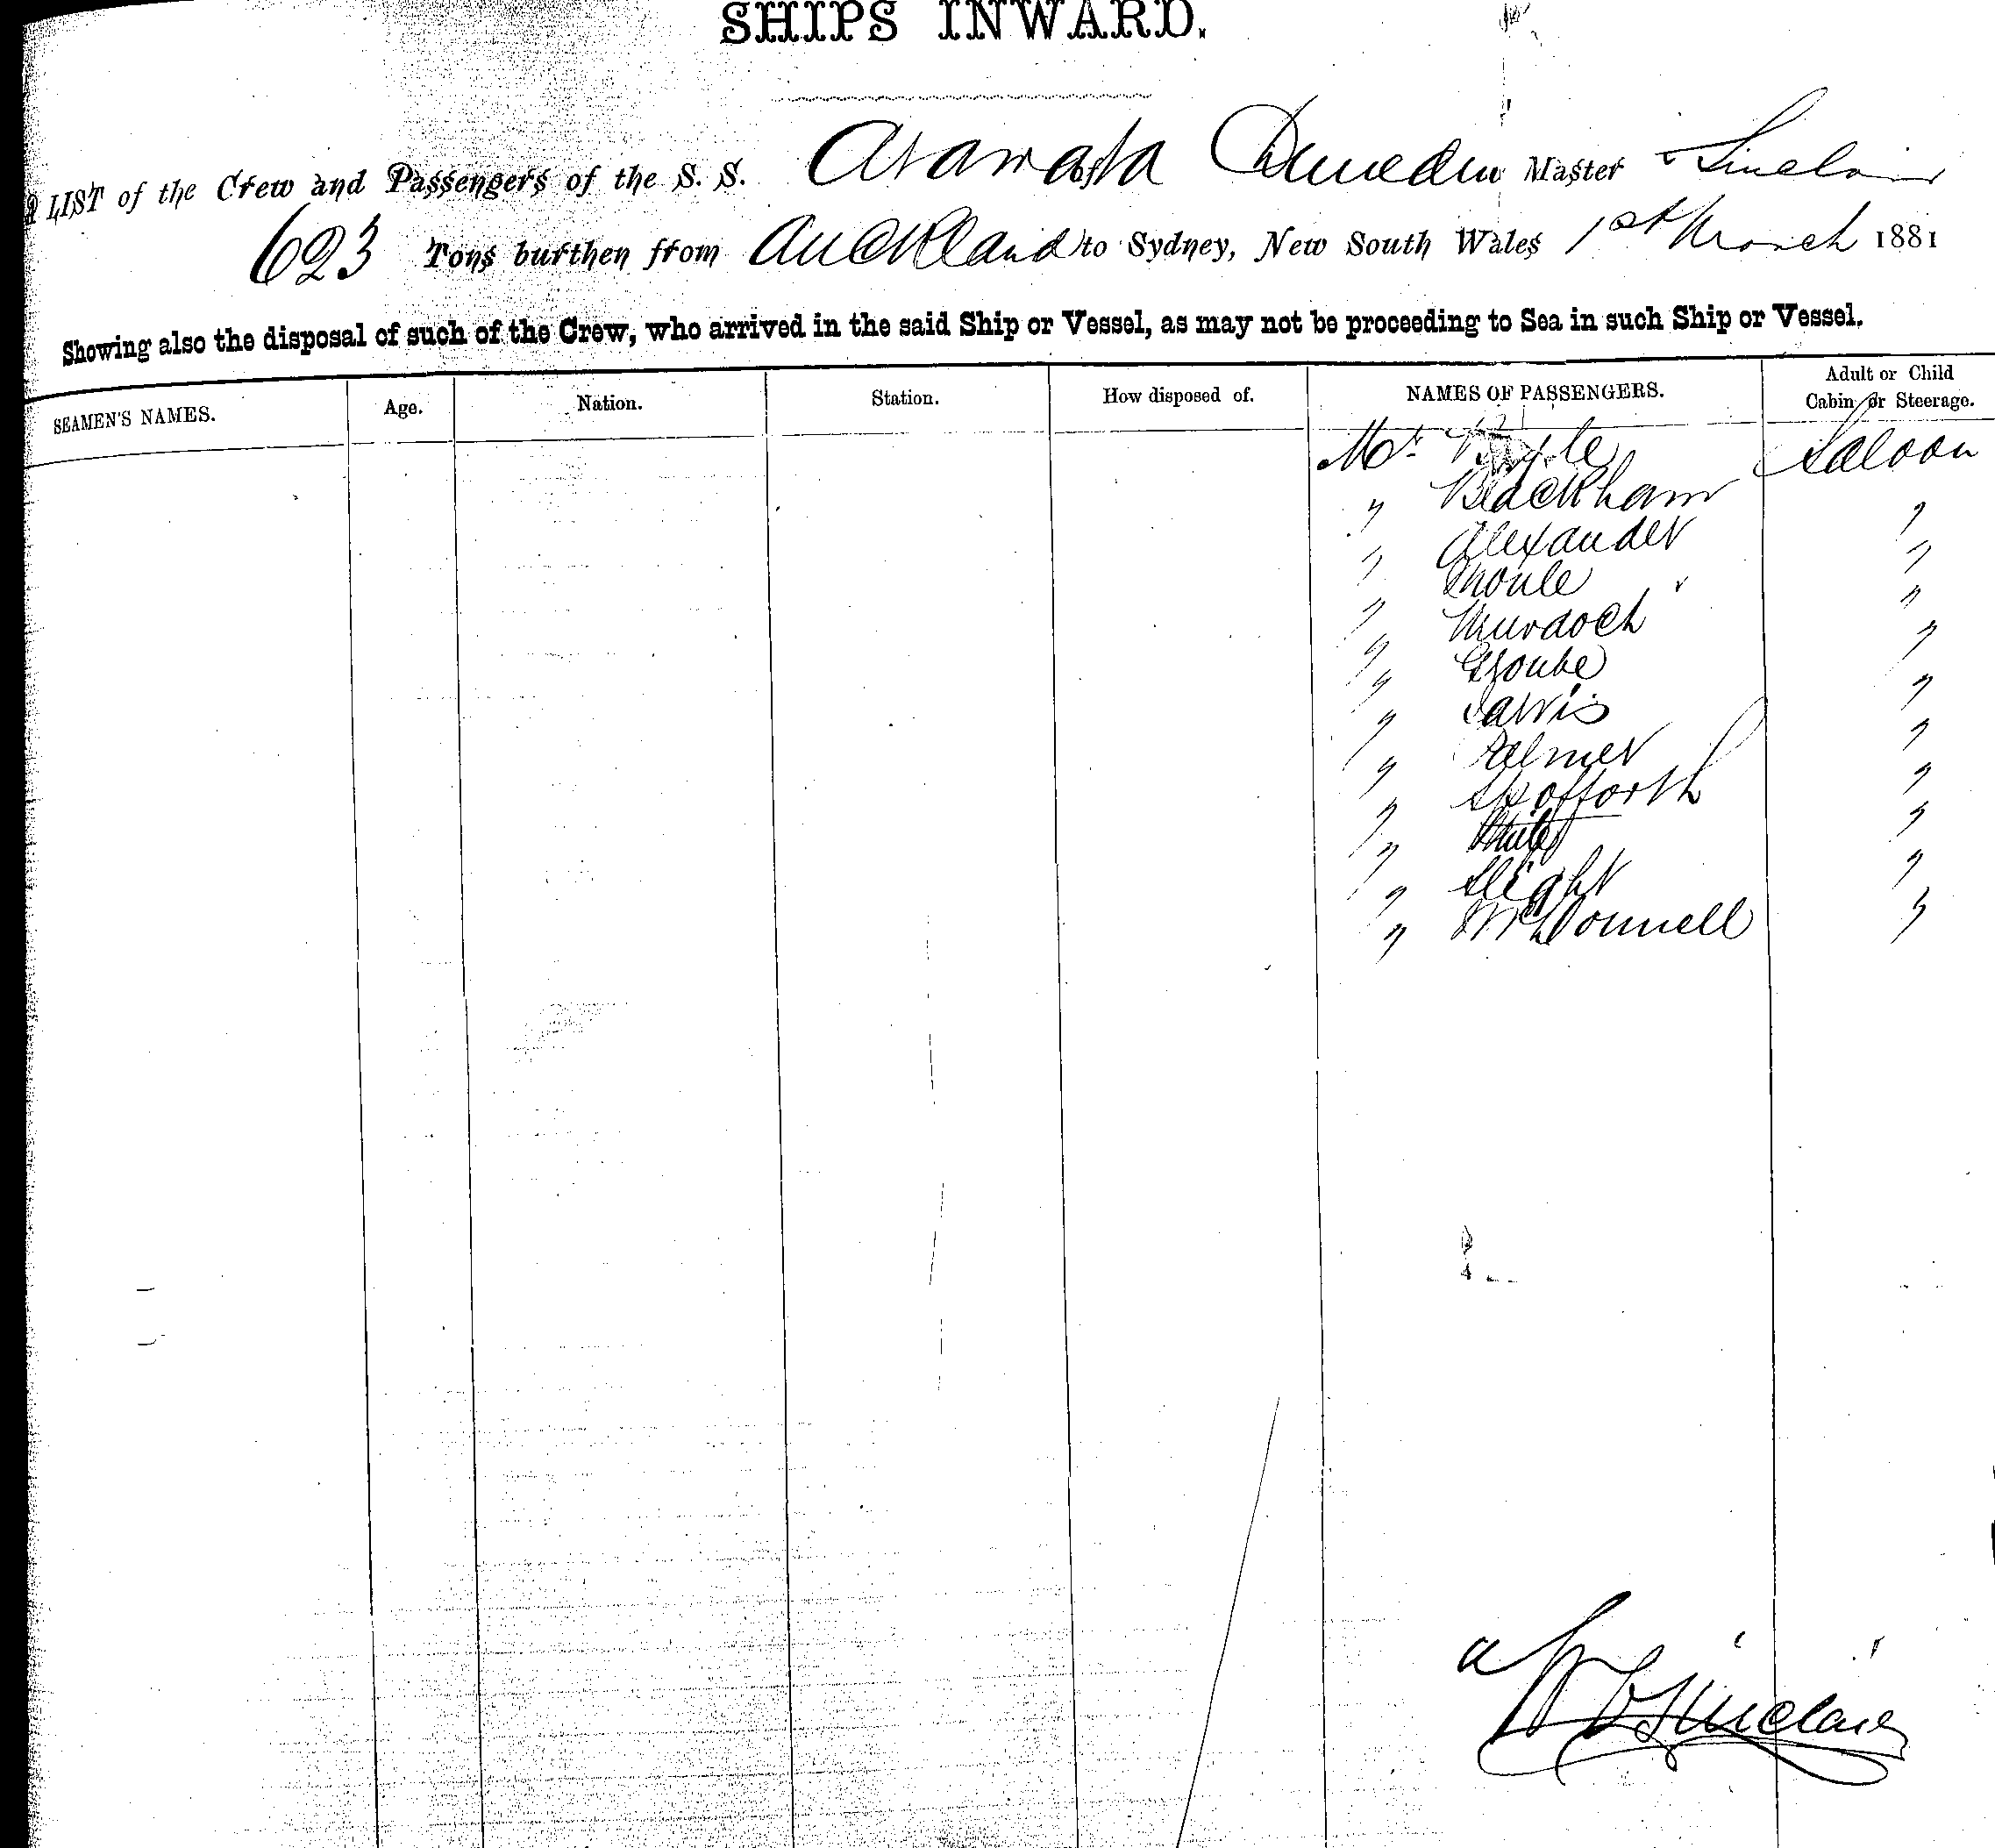 SHIPS INWARD.
A LIST of the Crew and Passengers of the S. S. Arawata Dunedin Master Sinclair
623 Tons burthen from Auckland to Sydney, New South Wales 1st March 1881
Showing also the disposal of such of the Crew, who arrived in the said Ship or Vessel, as may not be proceeding to Sea in such Ship or Vessel.
SEAMEN'S NAMES. Age. Nation. Station. How disposed of. NAMES OF PASSENGERS. Adult or Child
Cabin or Steerage.
Mr. Boyle Saloon
" Blackham "
" Alexander "
" Moule "
" Murdoch "
" Groube "
" Jarvis "
" Palmer "
" Spofforth "
"
" Slight "
" McDonnell "
Sinclair